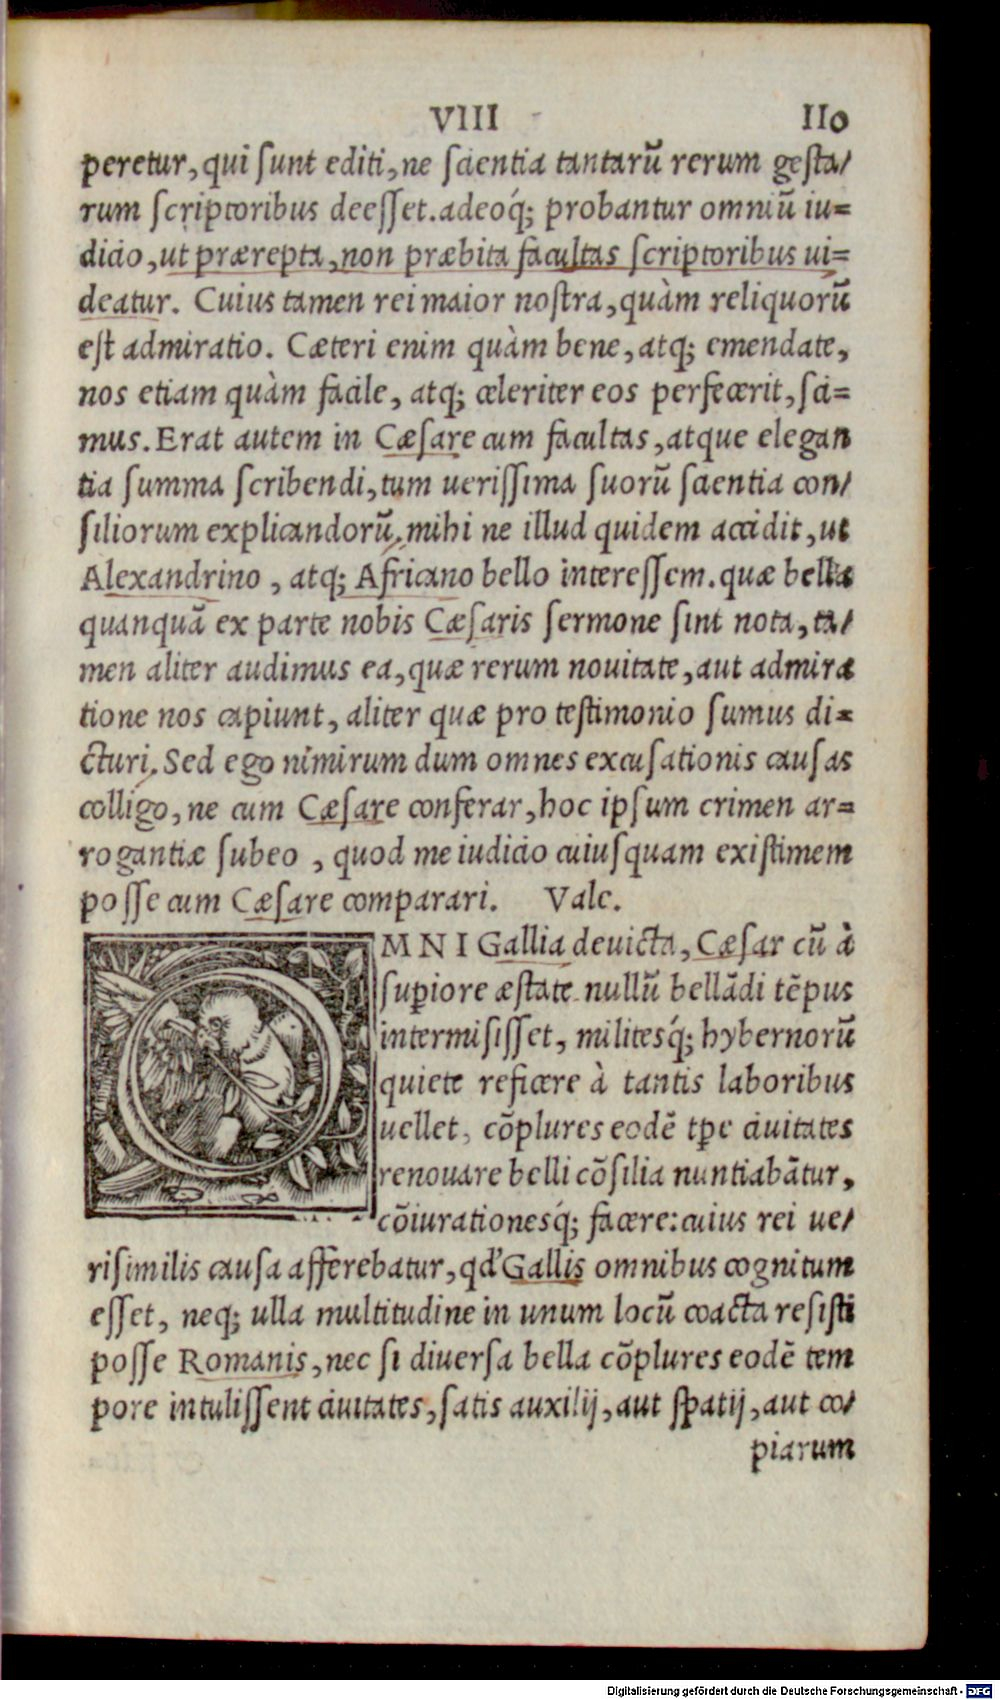 VIII 110
peretur, qui ſunt editi, ne ſcientia tantarũ rerum geſta/
rum ſcriptoribus deeſſet. adeoq́; probantur omniũ iu=
dicio, ut prærepta, non præbita facultas ſcriptoribus ui=
deatur. Cuius tamen rei maior noſtra, quàm reliquorũ
eſt admiratio. Cæteri enim quàm bene, atq; emendate,
nos etiam quàm facile, atq; celeriter eos perfecerit, ſci=
mus. Erat autem in Cæſare cum facultas, atque elegan
tia ſumma ſcribendi, tum ueriſſima ſuorũ ſcientia con/
ſiliorum explicandorũ. mihi ne illud quidem accidit, ut
Alexandrino, atq; Africano bello intereſſem. quæ bella
quanquã ex parte nobis Cæſaris ſermone ſint nota, ta/
men aliter audimus ea, quæ rerum nouitate, aut admira
tione nos capiunt, aliter quæ pro teſtimonio ſumus di=
cturi. Sed ego nimirum dum omnes excuſationis cauſas
colligo, ne cum Cæſare conferar, hoc ipſum crimen ar=
rogantiæ ſubeo, quod me iudicio cuiuſquam exiſtimem
poſſe cum Cæſare comparari. Vale.
OMNI Gallia deuicta, Cæſar cũ à
ſuꝑiore æſtate nullũ bellãdi tẽpus
intermiſiſſet, militesq́; hybernorũ
quiete reficere à tantis laboribus
uellet, cõplures eodẽ tꝑe ciuitates
renouare belli cõſilia nuntiabãtur,
cõiurationesq́; facere: cuius rei ue/
riſimilis cauſa afferebatur, qd' Gallis omnibus cognitum
eſſet, neq; ulla multitudine in unum locũ coacta reſiſti
poſſe Romanis, nec ſi diuerſa bella cõplures eodẽ tem
pore intuliſſent ciuitates, ſatis auxilij, aut ſpatij, aut co/
piarum
Digitalisierung gefördert durch die Deutsche Forschungsgemeinschaft - DFG